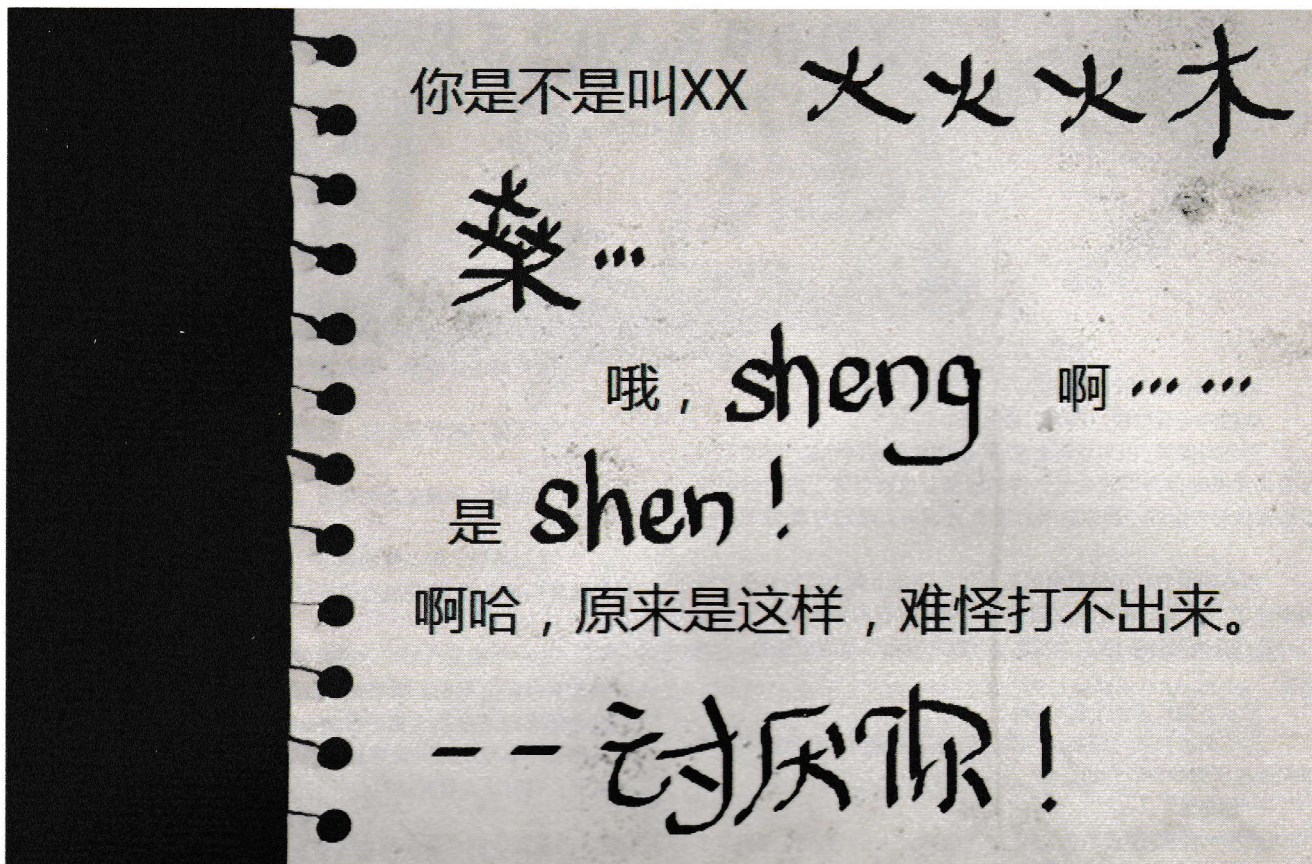 你是不是叫XX 火火火木
燊…
哦，sheng 啊……
是 shen！
啊哈，原来是这样，难怪打不出来。
--讨厌你！